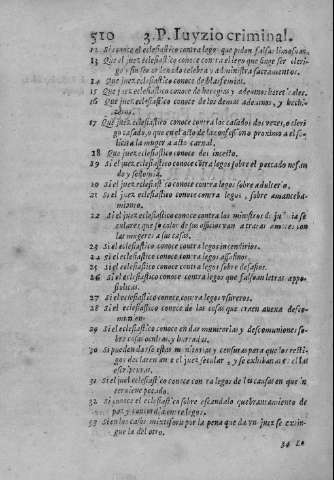 510 3. P. Iuyzio criminal.
12 Si conoce el eclesiastico contra legos que piden falsas limosnas.
13 Que el juez eclesiastico conoce contra el lego que finge ser cleri-
go, y sin ser ordenado celebra y administra sacramentos.
14 Que juez eclesiastico conoce de blasfemias.
15 Que juez eclesiastico conoce de heregias y ademas heretícales.
16 Que juez eclesiastico conoce de los demas adevinos, y hechi-
zeros.
17 Que juez eclesiastico conoce contra los casados dos vezes, o cleri
go casado, o que en el acto de la confession o proximo a el so-
licita la muger a acto carnal.
18 Que juez eclesiastico conoce del incesto.
19 Si el juez eclesiastico conoce contra legos sobre el peccado nefan
do y sodomia.
20 Si el juez eclesiastico conoce contra legos sobre adulterio.
21 Si el juez eclesiastico conoce contra legos, sobre amanceba-
miento.
22 Si el juez eclesiastico conoce contra los ministros de justicia se
culares, que so color de sus oficios van a tratar con
las mugeres a sus casas.
23 Si el eclesiastico conoce contra legos incendiarios.
24 Si el eclesiastico conoce contra legos assasinos.
25 Si el eclesiastico conoce contra legos sobre desafios.
26 Si el eclesiastico conoce contra legos que falsean letras appo-
stolicas.
27 Si el eclesiastico conoce contra legos usureros.
28 Si el eclesiastico conoce de las cosas que traen anexa desco-
munion.
29 Si el eclesiastico conoce en dar monitorias y descomuniones so-
bre cosas ocultas, y hurtadas.
30 Si pueden darse estas monitorias y censuras para que los testi-
gos declaren ante el juez seculer, y se exhiban ante el las
escripturas.
31 Si el juez eclesiastico conoce contra legos de las causas en que in
terviene pecado.
32 Si conoce el eclesiastico sobre escandalo quebrantamiento de
paz y concordia entre legos.
33 Si en los casos mixti fori por la pena que da vn juez se extin-
gue la del otro.
34 La